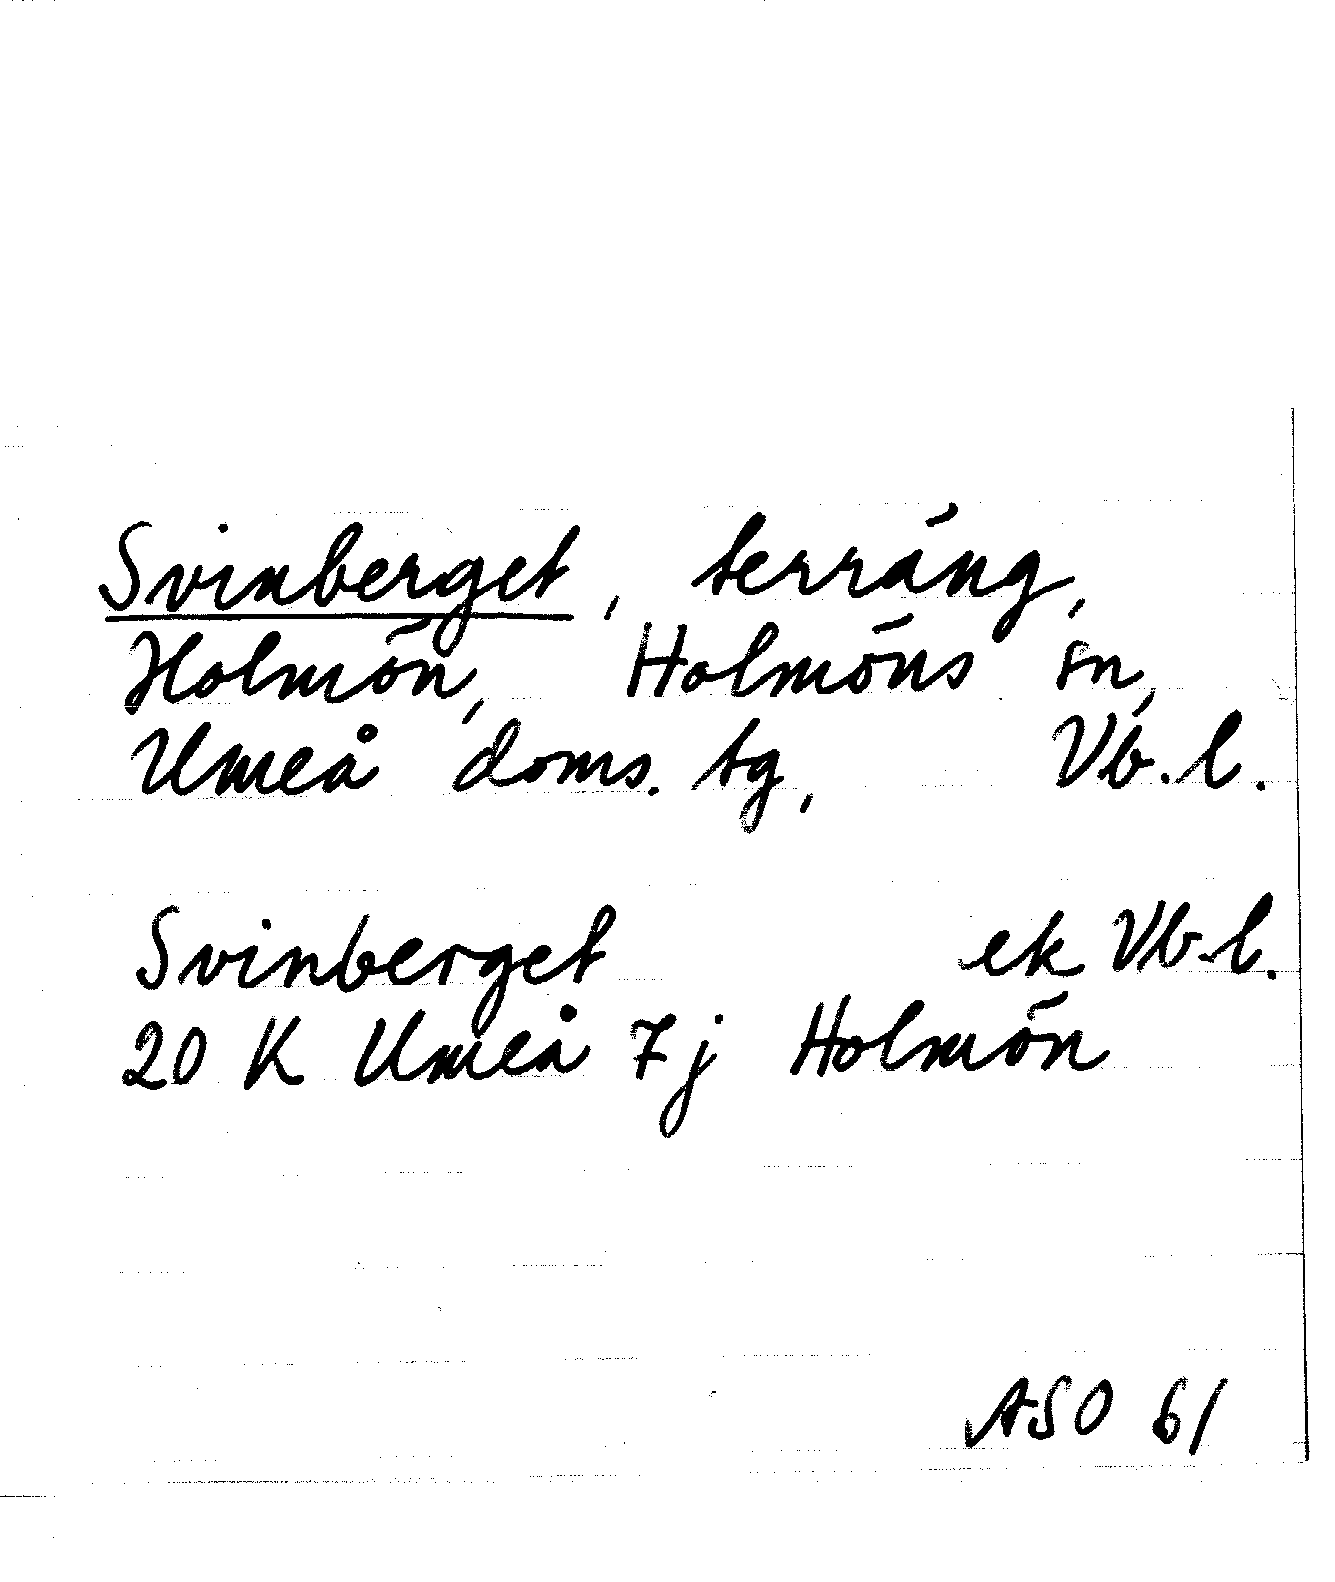 Svinberget, terräng,
Holmön, Holmöns sn,
Umeå doms. tg, Vb.l.
Svinberget ek Vb.l.
20 K Umeå 7j Holmön
ASO 61